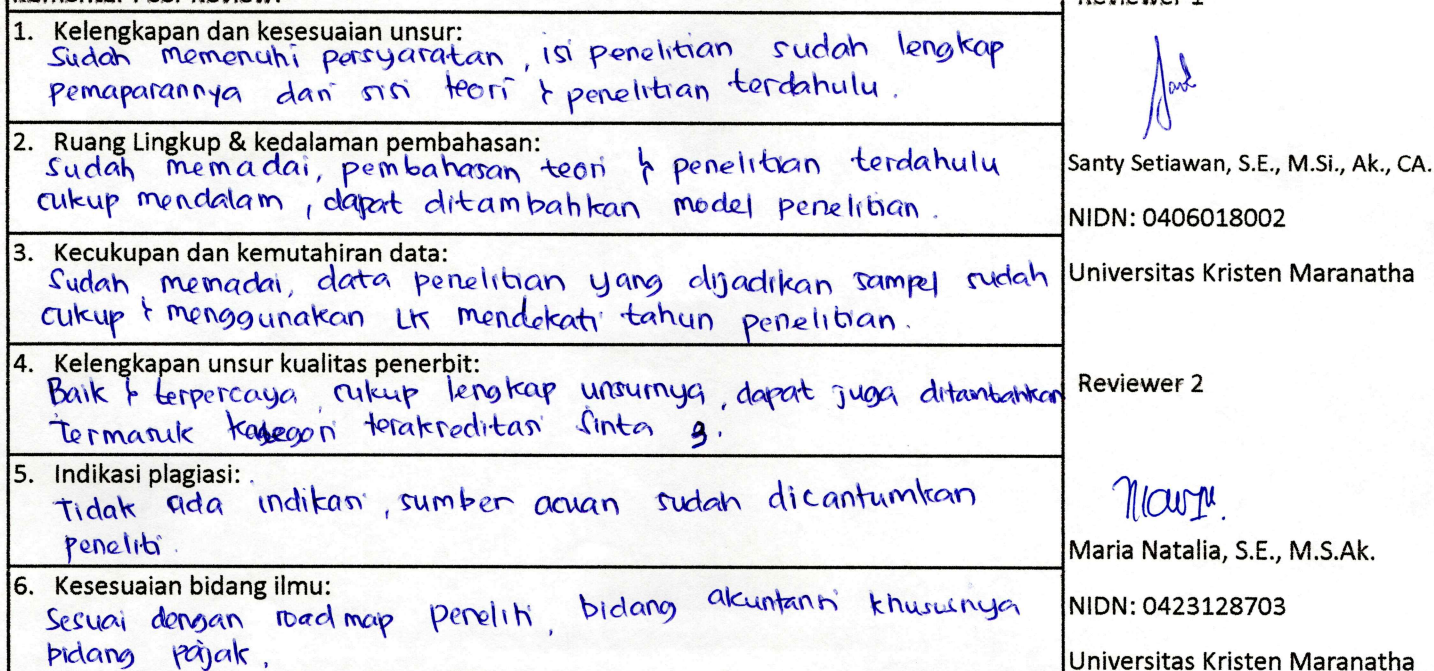 1. Kelengkapan dan kesesuaian unsur:
Sudah memenuhi persyaratan, isi penelitian sudah lengkap
pemaparannya dari sisi teori & penelitian terdahulu.
2. Ruang Lingkup & kedalaman pembahasan:
Sudah memadai, pembahasan teori & penelitian terdahulu
cukup mendalam, dapat ditambahkan model penelitian.
3. Kecukupan dan kemutahiran data:
Sudah memadai, data penelitian yang dijadikan sampel sudah
cukup & menggunakan LK mendekati tahun penelitian.
4. Kelengkapan unsur kualitas penerbit:
Baik & terpercaya, cukup lengkap unsurnya, dapat juga ditambahkan
termasuk kategori terakreditasi Sinta 3.
5. Indikasi plagiasi:
Tidak ada indikasi, sumber acuan sudah dicantumkan
peneliti.
6. Kesesuaian bidang ilmu:
Sesuai dengan road map peneliti, bidang akuntansi khususnya
bidang pajak.
Reviewer 1
Santy Setiawan, S.E., M.Si., Ak., CA.
NIDN: 0406018002
Universitas Kristen Maranatha
Reviewer 2
Maria Natalia, S.E., M.S.Ak.
NIDN: 0423128703
Universitas Kristen Maranatha